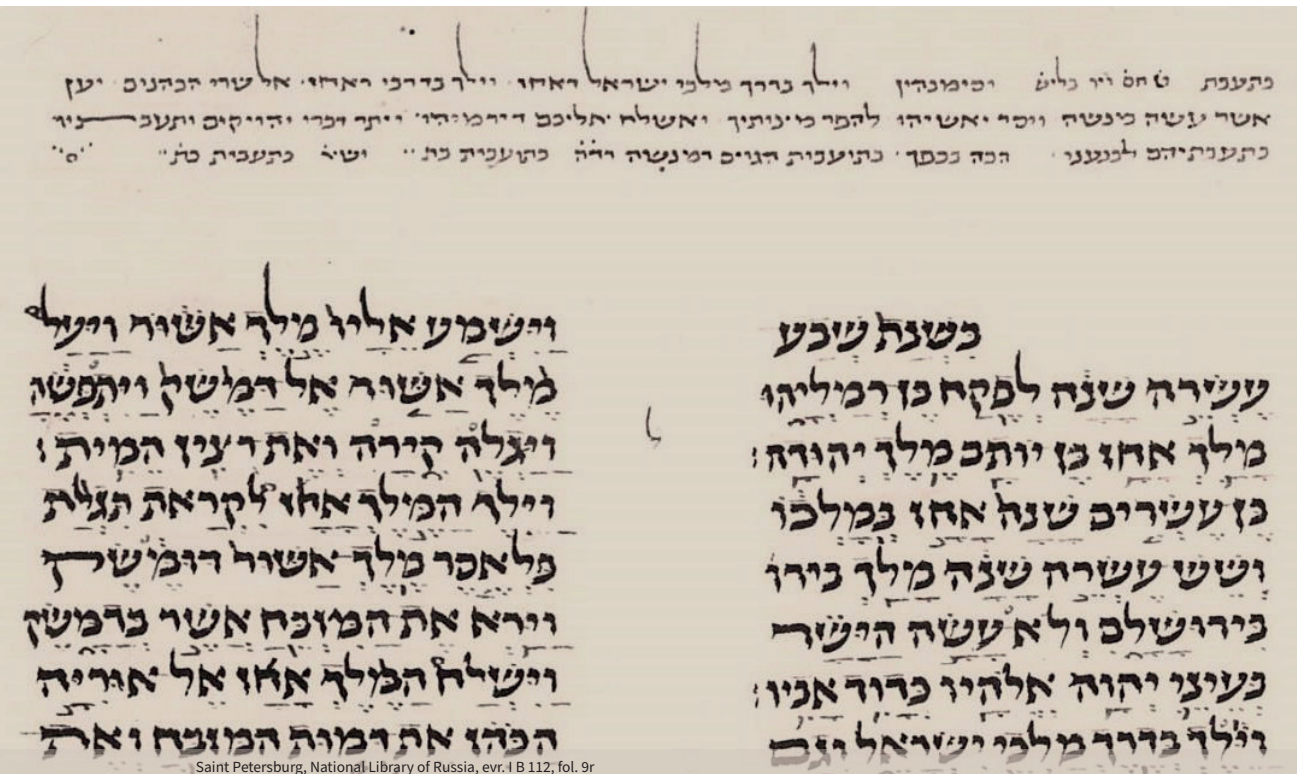 כתעבת ט חס ויו בליש וסימנהון וילך בדרך מלכי ישראל דאחז וילך בדרכי דאחז אל שרי הכהנים יען
אשר עשה מנשה ויסר יאשיהו להפר ואשלח אליכם דירמיהו ויתר דברי יהויקים
כתעבתיהם לכנעני הכה בכפך כתועבות הגוים דמנשה
בשנת שבע
עשרה שנה לפקח בן רמליהו
מלך אחז בן יותם מלך יהודה׃
בן עשרים שנה אחז במלכו
ושש עשרה שנה מלך בירו
בירושלם ולא עשה הישר
בעיני יהוה אלהיו כדוד אביו׃
וילך בדרך מלכי ישראל וגם
ל
וישמע אליו מלך אשור ויעל
מלך אשור אל דמשק ויתפשה
ויגלה קירה ואת רצין המית׃
וילך המלך אחז לקראת תגלת
פלאסר מלך אשור דומשק
וירא את המזבח אשר בדמשק
וישלח המלך אחז אל אוריה
הכהן את דמות המזבח ואת
Saint Petersburg, National Library of Russia, evr. I B 112, fol. 9r